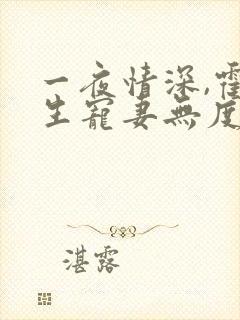 一夜情深,霍
生寵妻無度
湛露